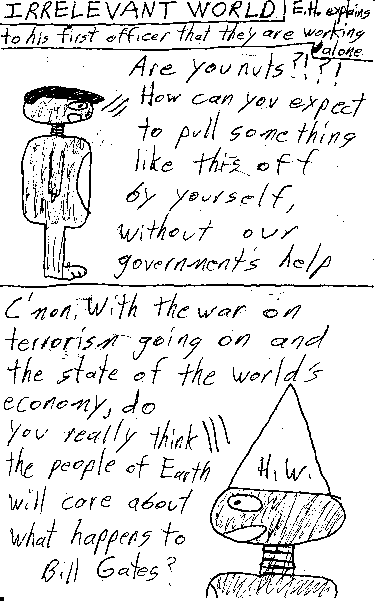 IRRELEVANT WORLD E.H. explains
to his first officer that they are working
alone
Are you nuts?!?!
How can you expect
to pull something
like this off
by yourself,
without our
government's help
C'mon, With the war on
terrorism going on and
the state of the world's
economy, do
you really think
the people of Earth
will care about
what happens to
Bill Gates?
H.W.